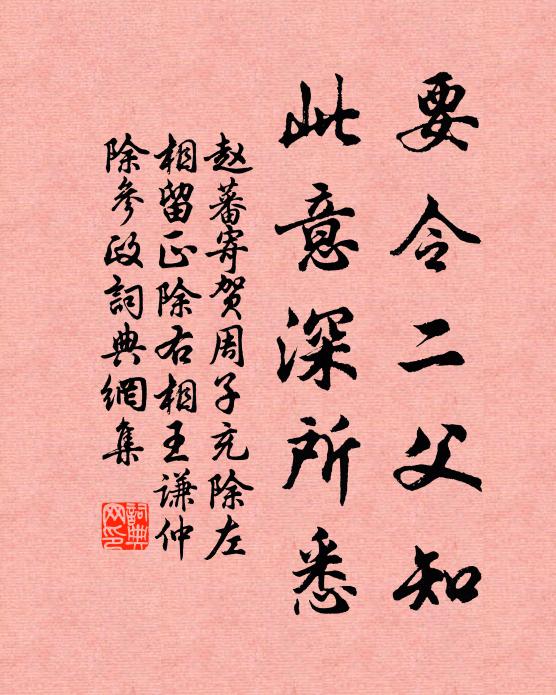 要令二父知
此意深所悉
赵蕃寄贺周子充除左
相留正除右相王谦仲
除参政詞典網集
詞典
网印